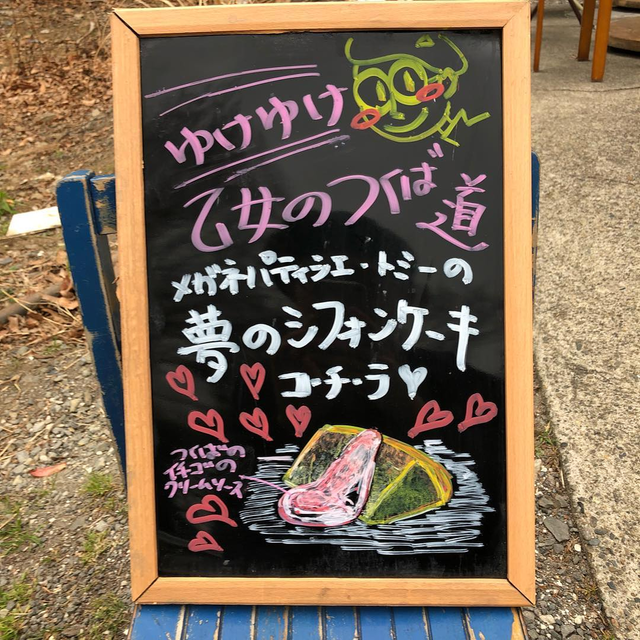 ゆけゆけ
乙女のつくば道
メガネパティシエ・トミーの
夢のシフォンケーキ
コ・チ・ラ♡
つくばの
イチゴの
クリームソース